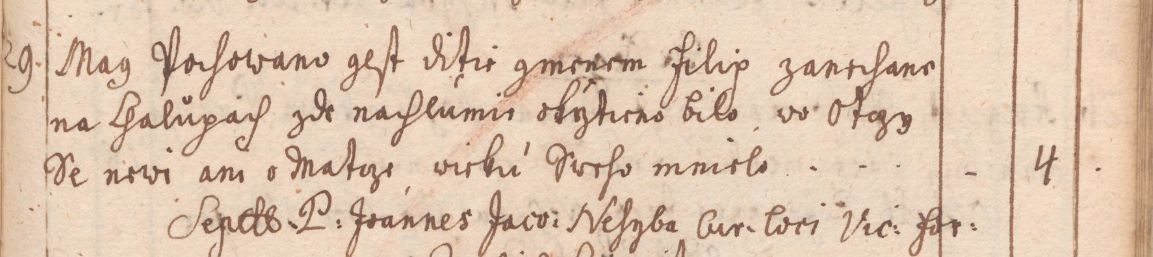 29. May Pochowano gest ditie gmenem Filip zanechane
na Chalůpach zde nachlumie okrztieno bilo wo Otczy
Se newi ani o Matcze, wieku Sweho mnielo . - . . - 4 .
Sepult. P: Joannes Jaco: Nehyba Cur. loci Vic: For: